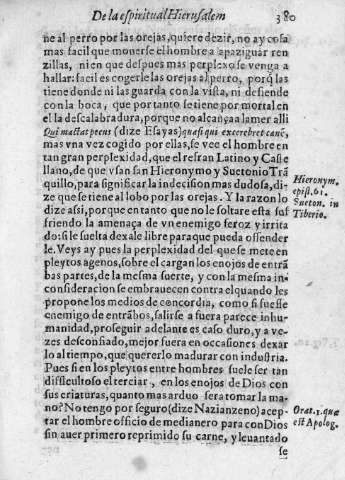 De la espiritual Hierusalem 380
ne al perro por las orejas, quiere dezir, no ay cosa
mas facil que mouerse el hombre a apaziguar ren
zillas, ni en que despues mas perplexo se venga a
hallar: facil es cogerle las orejas al perro, porq̃ las
tiene donde ni las guarda con la vista, ni defiende
con la boca, que por tanto se tiene por mortal en
el la descalabradura, porque no alcança a lamer alli
Qui mactat pecus (dize Esayas) quasi qui excerebret canẽ,
mas vna vez cogido por ellas, se vee el hombre en
tan gran perplexidad, que el refran Latino y Caste
llano, de que vsan san Hieronymo y Suetonio Trã
quillo, para significar la indecision mas dudosa, di-
ze que se tiene al lobo por las orejas. Y la razon lo
dize assi, porque en tanto que no le soltare esta suf
friendo la amenaça de vn enemigo feroz y irrita
do: si le suelta dexale libre paraque pueda offender
le. Veys ay pues la perplexidad del que se mete en
pleytos agenos, sobre el cargan los enojos de entrã
bas partes, de la mesma suerte, y con la mesma in-
consideracion se embrauecen contra el quando les
propone los medios de concordia, como si fuesse
enemigo de entrãbos, salirse a fuera parece inhu-
manidad, proseguir adelante es caso duro, y a ve-
zes desconfiado, mejor fuera en occasiones dexar
lo al tiempo, que quererlo madurar con industria.
Pues si en los pleytos entre hombres suele ser tan
difficultoso el terciar, en los enojos de Dios con
sus criaturas, quanto mas arduo sera tomar la ma-
no? No tengo por seguro (dize Nazianzeno) acep-
tar el hombre officio de medianero para con Dios
sin auer primero reprimido su carne, y leuantado
se
Hieronym.
epist. 61.
Sueton. in
Tiberio.
Orat. 1. quæ
est Apolog.